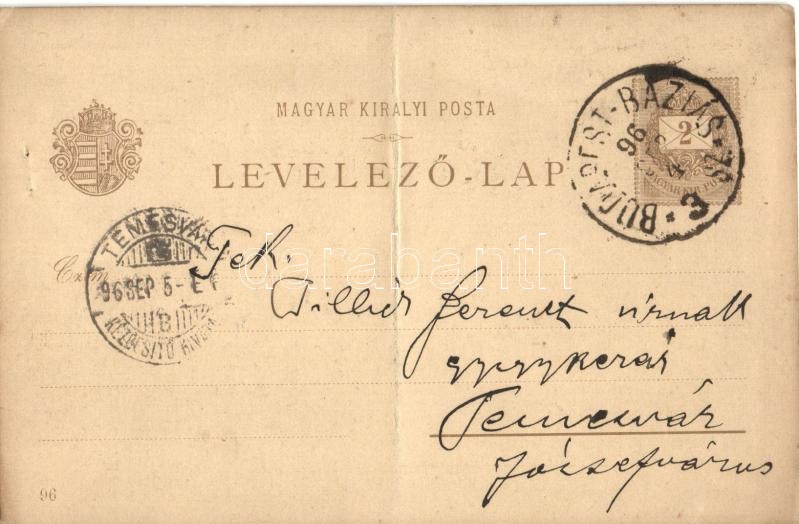 MAGYAR KIRÁLYI POSTA
LEVELEZŐ-LAP
BUDAPEST-BAZIÁS
96
SZ. 3
2
MAGYAR KIR. POSTA
TEMESVÁR
96 SEP 5-
KÉZBESÍTŐ HIVATAL
Czim
Tek.
Ferencz úrnak
Temesvár
Józsefváros
96
darabanth